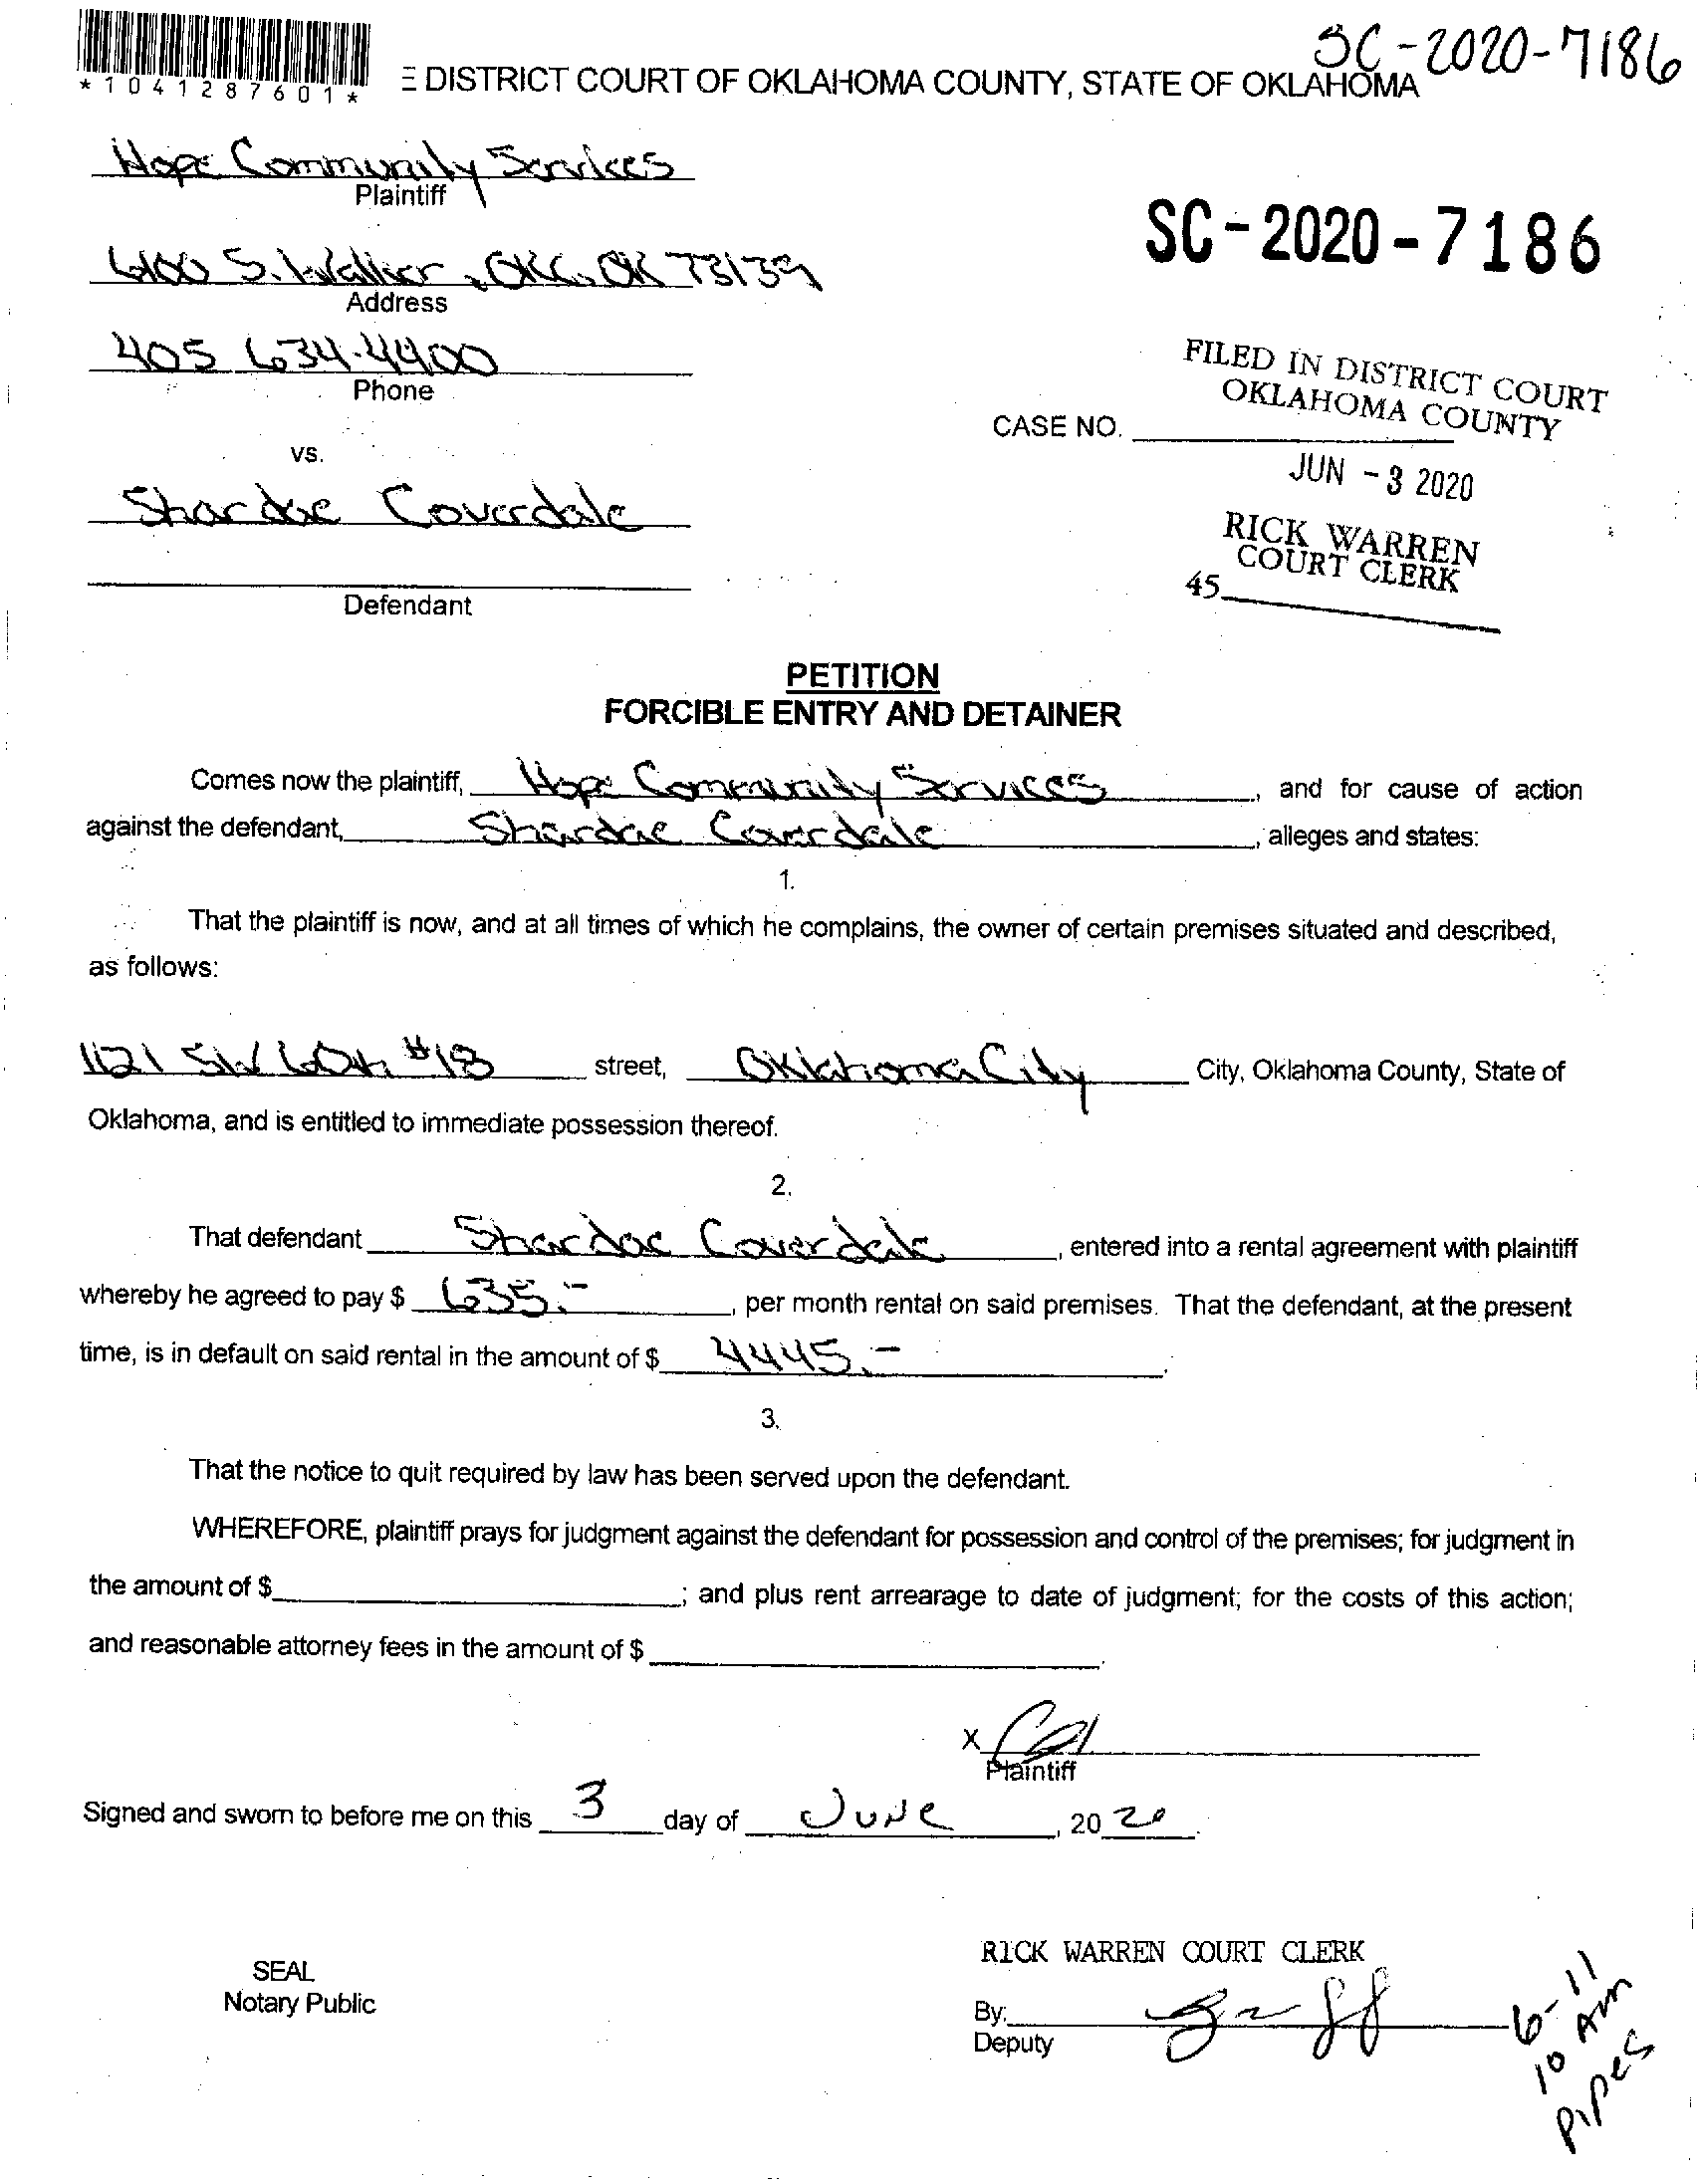 SC-2020-7186
*1041287601*
E DISTRICT COURT OF OKLAHOMA COUNTY, STATE OF OKLAHOMA
Hope Community Services
Plaintiff
SC-2020-7186
6100 S. Walker, OKC, OK 73139
Address
405 634-4400
Phone
FILED IN DISTRICT COURT
OKLAHOMA COUNTY
CASE NO.
vs.
JUN - 3 2020
Shardae Coverdale
RICK WARREN
COURT CLERK
45
Defendant
PETITION
FORCIBLE ENTRY AND DETAINER
Comes now the plaintiff, Hope Community Services, and for cause of action
against the defendant, Shardae Coverdale, alleges and states:
1.
That the plaintiff is now, and at all times of which he complains, the owner of certain premises situated and described,
as follows:
1121 SW 60th #18 street, Oklahoma City City, Oklahoma County, State of
Oklahoma, and is entitled to immediate possession thereof.
2.
That defendant Shardae Coverdale, entered into a rental agreement with plaintiff
whereby he agreed to pay $ 635.-, per month rental on said premises. That the defendant, at the present
time, is in default on said rental in the amount of $ 4445.-.
3.
That the notice to quit required by law has been served upon the defendant.
WHEREFORE, plaintiff prays for judgment against the defendant for possession and control of the premises; for judgment in
the amount of $ ; and plus rent arrearage to date of judgment; for the costs of this action;
and reasonable attorney fees in the amount of $ .
X
Plaintiff
Signed and sworn to before me on this 3 day of June, 20 20.
RICK WARREN COURT CLERK
SEAL
Notary Public
By:
Deputy
6-11
10 AM
Pipes